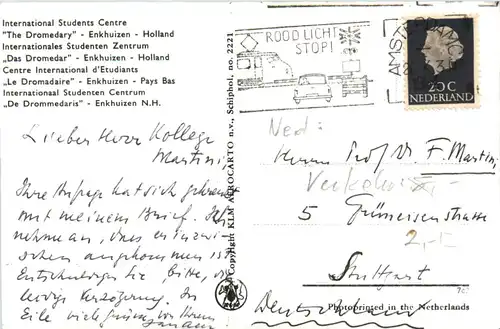 International Students Centre
"The Dromedary" - Enkhuizen - Holland
Internationales Studenten Zentrum
„Das Dromedar" - Enkhuizen - Holland
Centre International d'Etudiants
"Le Dromadaire" - Enkhuizen - Pays Bas
Internationaal Studenten Centrum
„De Drommedaris" - Enkhuizen N.H.
Lieber Herr Kollege
Martini,
Ihre Anfrage hat sich gekreuzt
mit meinem Brief. Ich
nehme an, dass er inzwi-
schen angekommen ist.
Entschuldigen Sie, bitte, die
leidige Verzögerung. In
Eile viele Grüsse von Ihrem
Copyright KLM AEROCARTO n.v., Schiphol, no. 2221
ROOD LICHT
STOP!
AMSTERDAM
20 C
NEDERLAND
Ned:
Herrn Prof Dr F. Martini
5 Grüneisenstrasse
Stuttgart
Deutschland
Photoprinted in the Netherlands